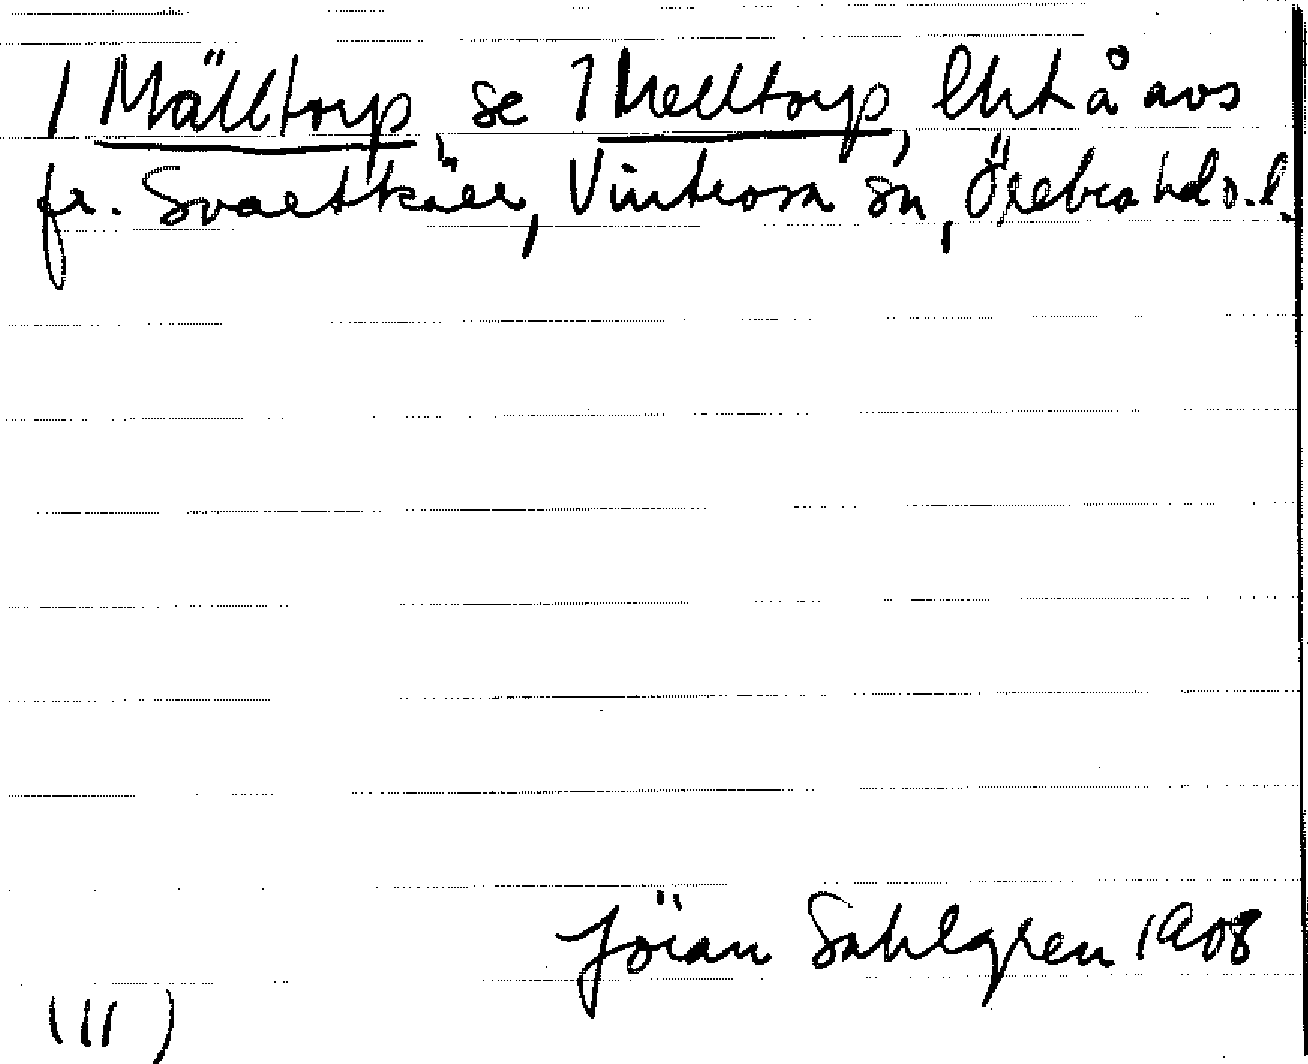 1 Mälltorp, se 1 Melltorp, lht å avs
fr. Svartkärr, Vintrosa sn, Örebro hd o. l.
Jöran Sahlgren 1908
(11)